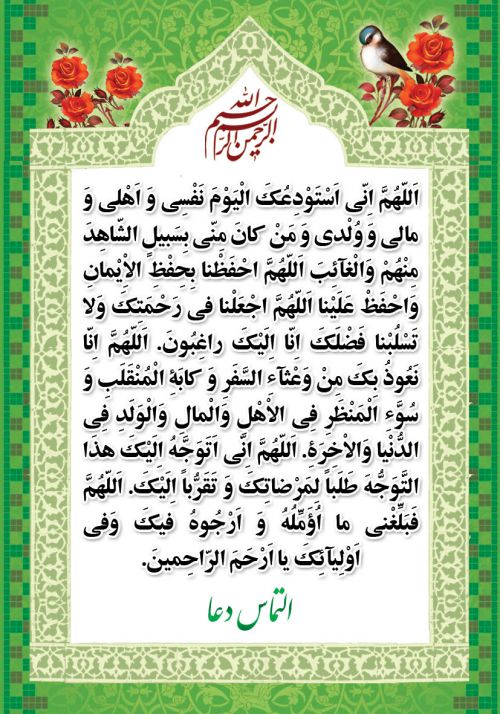 بسم الله الرحمن الرحیم
اَللّهُمَّ اِنّی اَسْتَوْدِعُکَ الْیَوْمَ نَفْسِی وَ اَهْلی وَ
مالی وَ وُلْدی وَ مَنْ کانَ مِنّی بِسَبیلٍ الشّاهِدَ
مِنْهُمْ وَالْغآئِبَ اَللّهُمَّ احْفَظْنا بِحِفْظِ الاِْیْمانِ
وَاحْفَظْ عَلَیْنا اَللّهُمَّ اجْعَلْنا فی رَحْمَتِکَ وَلا
تَسْلُبْنا فَضْلَکَ اِنّا اِلَیْکَ راغِبُونَ. اَللّهُمَّ اِنّا
نَعُوذُ بِکَ مِنْ وَعْثآءِ السَّفَرِ وَ کابَةِ الْمُنْقَلَبِ وَ
سُوَّءِ الْمَنْظَرِ فِی الاَْهْلِ وَالْمالِ وَالْوَلَدِ فِی
الدُّنْیا وَالاْخِرَةِ. اَللّهُمَّ اِنّی اَتَوَجَّهُ اِلَیْکَ هذَا
التَّوَجُّهَ طَلَباً لِمَرْضاتِکَ وَ تَقَرُّباً اِلَیْکَ. اَللّهُمَّ
فَبَلِّغْنی ما اُؤَمِّلُهُ وَ اَرْجُوهُ فیکَ وَفی
اَوْلِیآئِکَ یا اَرْحَمَ الرّاحِمینَ.
التماس دعا